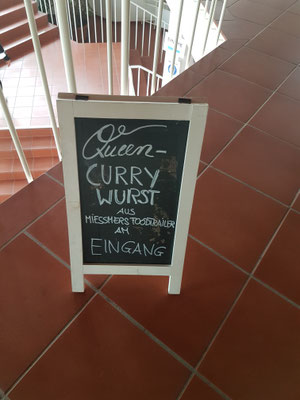 Queen-
CURRY
WURST
AUS
MIESSMERS FOODTRAILER
AM
EINGANG